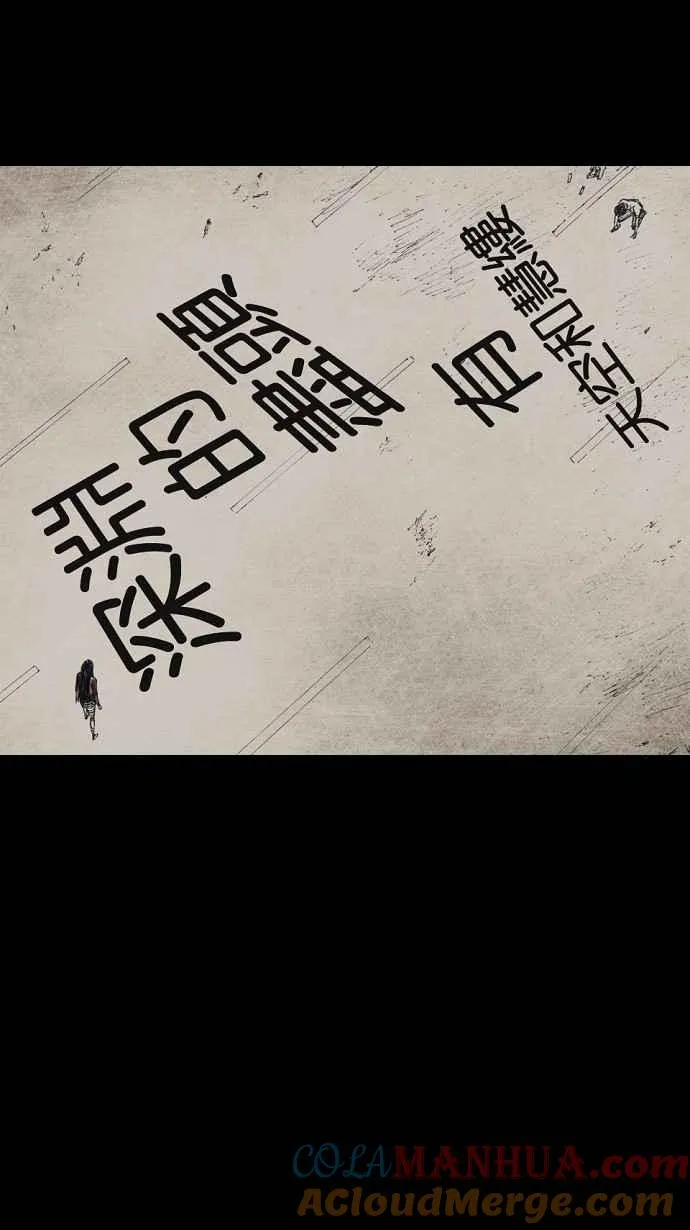 深淵的盡頭
有
天空和慧縷
COLAMANHUA.com
ACloudMerge.com